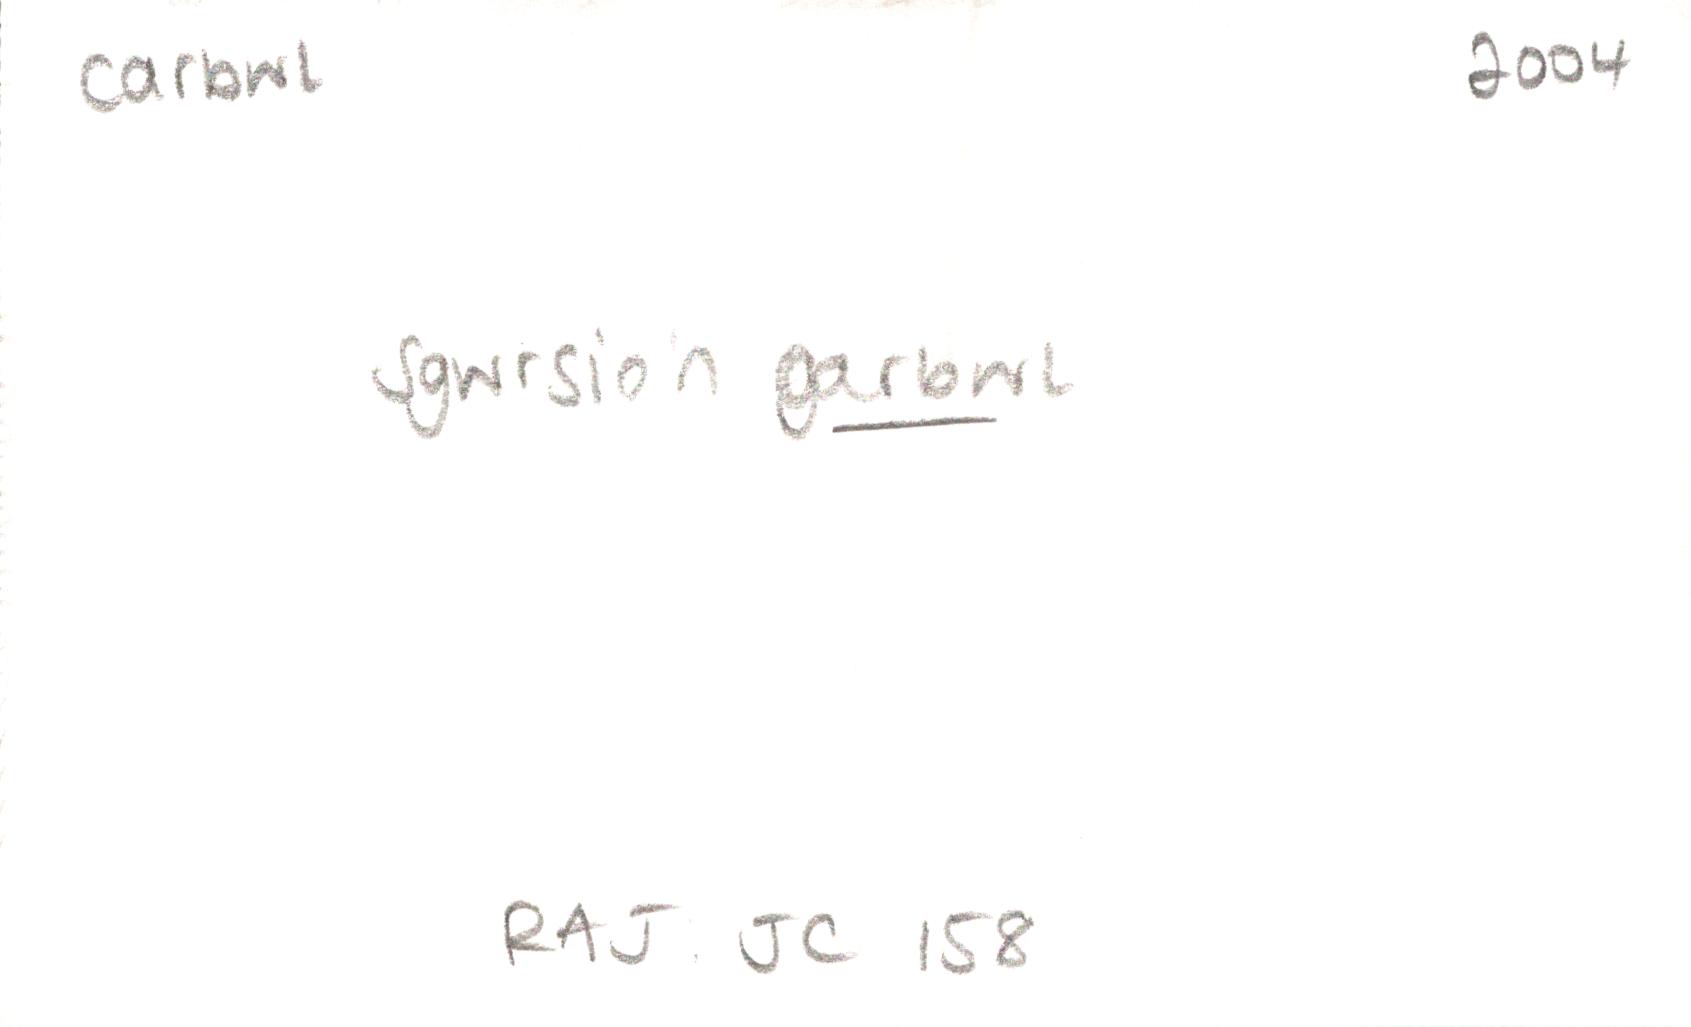 carbwl
2004
Sgwrsio'n garbwl
RAJ: JC 158